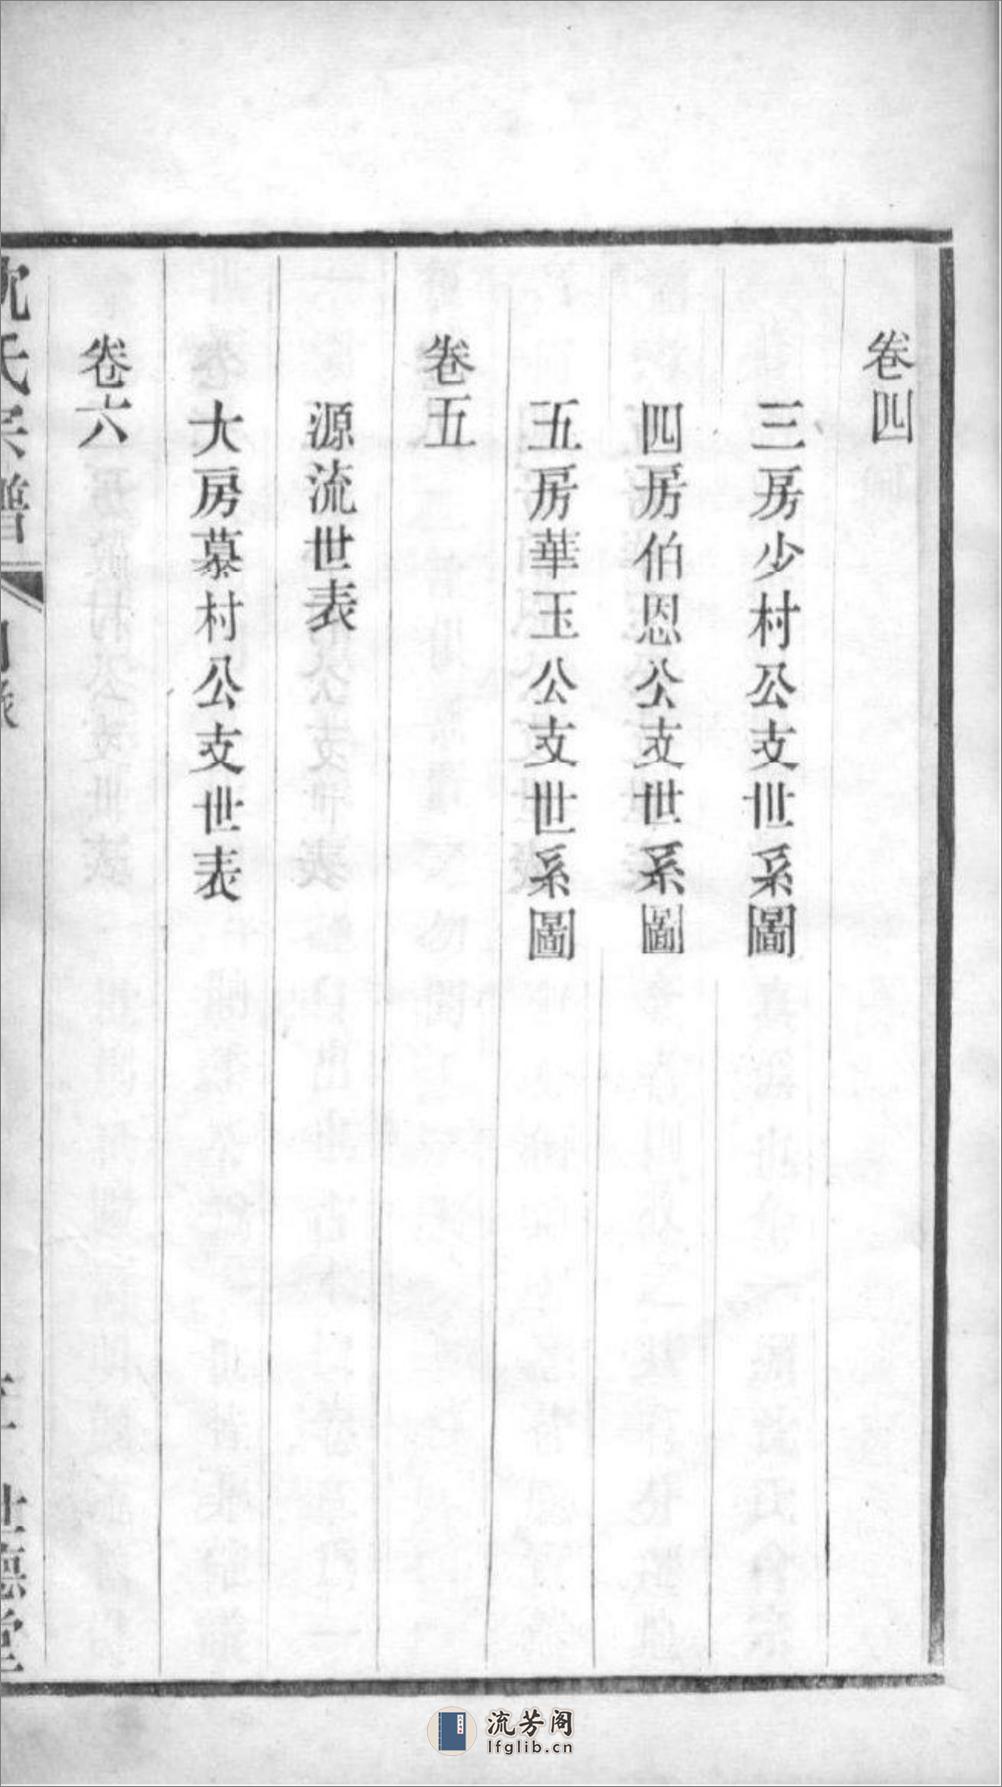 卷四
三房少村公支世系圖
四房伯恩公支世系圖
五房華玉公支世系圖
卷五
源流世表
大房慕村公支世表
卷六
沈氏宗譜
目錄
世德堂
流芳阁
lfglib.cn